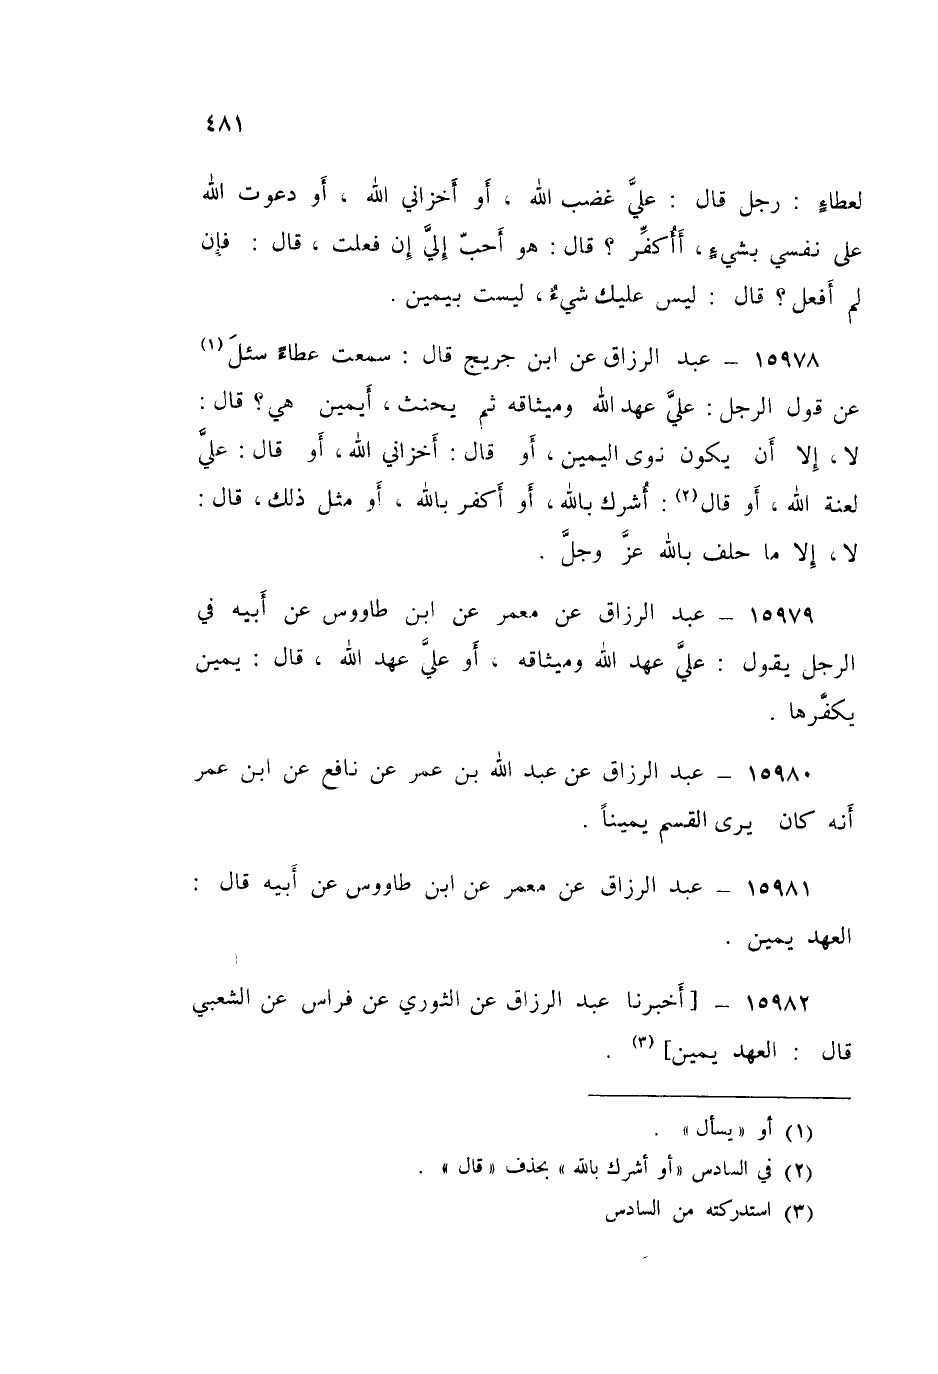 ٤٨١
لعطاءٍ : رجل قال : عليَّ غضب الله ، أَو أَخزاني الله ، أَو دعوت الله
على نفسي بشيءٍ ، أَأُكفِّر ؟ قال : هو أَحبّ إِليَّ إِن فعلت ، قال : فإِن
لم أَفعل ؟ قال : ليس عليك شيءٌ ، ليست بيمين .
١٥٩٧٨ – عبد الرزاق عن ابن جريج قال : سمعت عطاءً سئلَ (١)
عن قول الرجل : عليَّ عهد الله وميثاقه ثم يحنث ، أَيمين هي ؟ قال :
لا ، إِلا أَن يكون نوى اليمين ، أَو قال : أَخزاني الله ، أَو قال : عليَّ
لعنة الله ، أَو قال (٢) : أُشرك بالله ، أَو أَكفر بالله ، أَو مثل ذلك ، قال :
لا ، إِلا ما حلف بالله عزَّ وجلَّ .
١٥٩٧٩ – عبد الرزاق عن معمر عن ابن طاووس عن أَبيه في
الرجل يقول : عليَّ عهد الله وميثاقه ، أَو عليَّ عهد الله ، قال : يمين
يكفَّرها .
١٥٩٨٠ – عبد الرزاق عن عبد الله بن عمر عن نافع عن ابن عمر
أَنه كان يرى القسم يميناً .
١٥٩٨١ – عبد الرزاق عن معمر عن ابن طاووس عن أَبيه قال :
العهد يمين .
١٥٩٨٢ – [أَخبرنا عبد الرزاق عن الثوري عن فراس عن الشعبي
قال : العهد يمين] (٣) .
(١) أو «يسأل» .
(٢) في السادس «أو أشرك بالله» بحذف «قال» .
(٣) استدركته من السادس